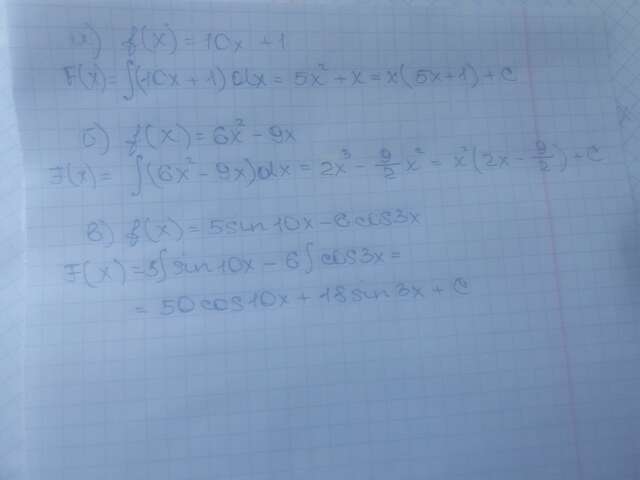 а) f(x) = 10x + 1
F(x) = ∫(10x + 1)dx = 5x² + x = x(5x+1) + C
б) f(x) = 6x² - 9x
F(x) = ∫(6x² - 9x)dx = 2x³ - 9/2 x² = x²(2x - 9/2) + C
в) f(x) = 5sin10x - 6cos3x
F(x) = 5∫sin10x - 6∫cos3x =
= 50cos10x + 18sin3x + C